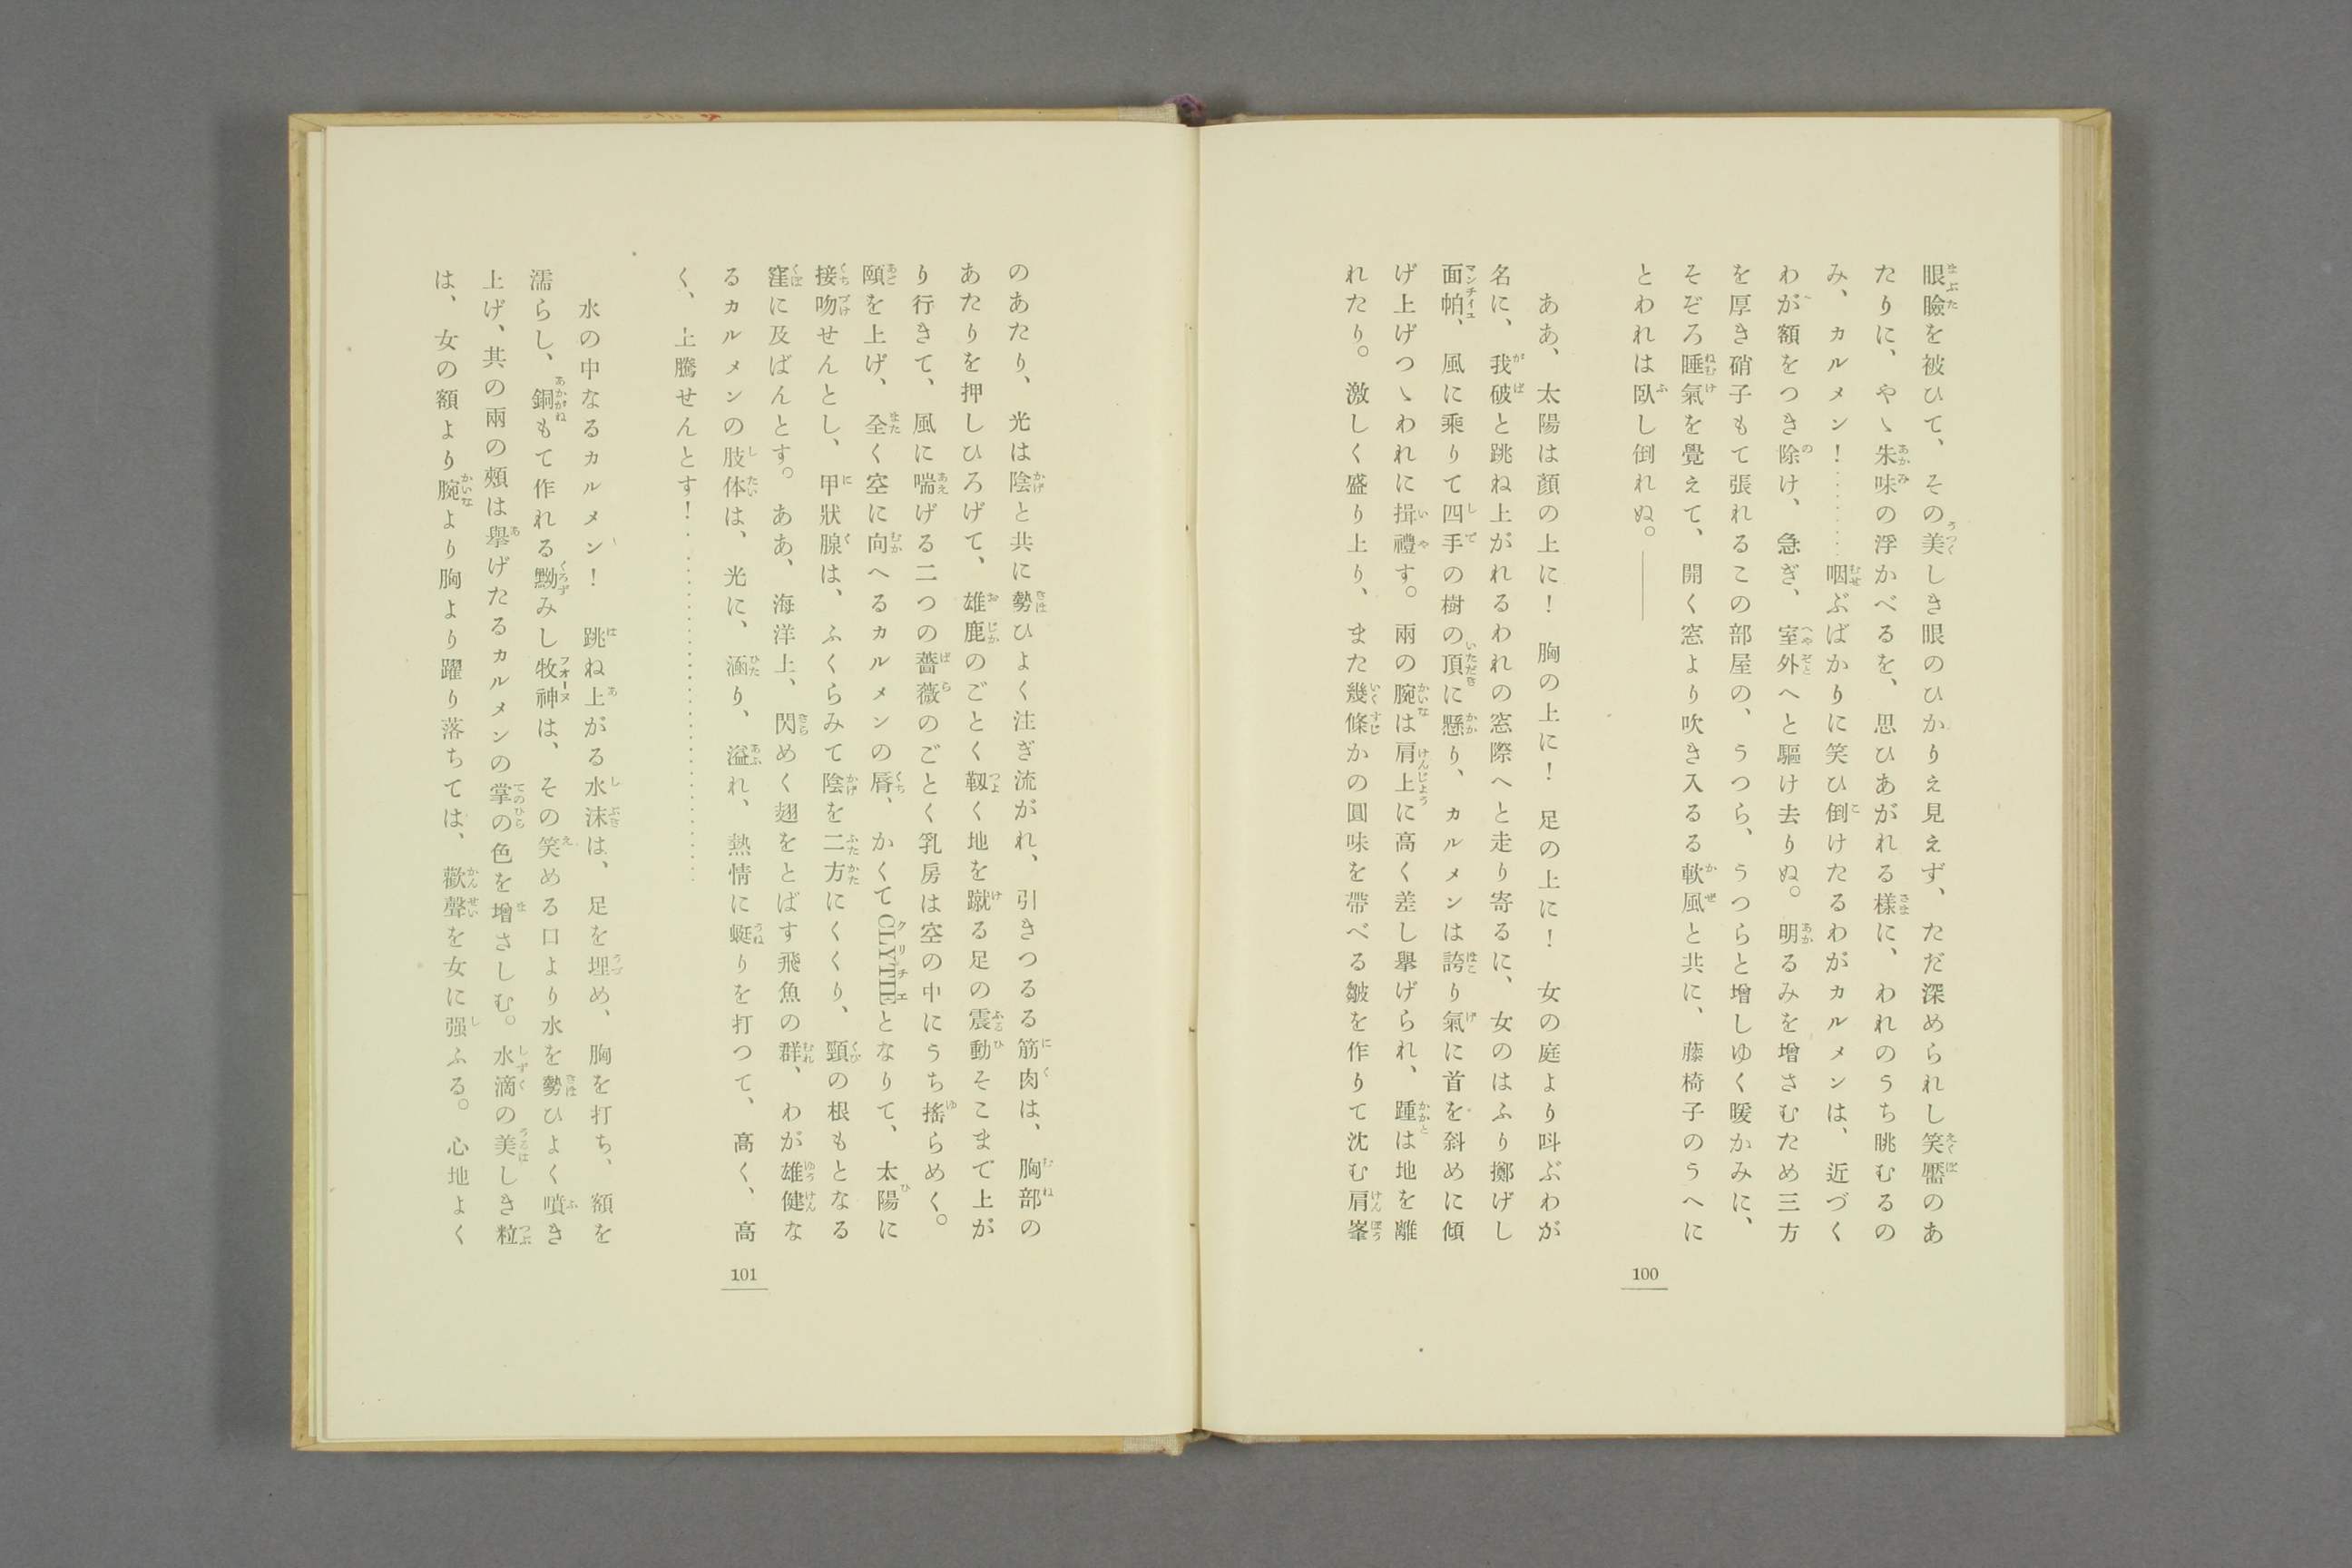 眼瞼を被ひて、その美しき眼のひかりえ見えず、ただ深められし笑靨のあ
たりに、やゝ朱味の浮かべるを、思ひあがれる様に、われのうち眺むるの
み、カルメン！……咽ぶばかりに笑ひ倒けたるわがカルメンは、近づく
わが額をつき除け、急ぎ、室外へと驅け去りぬ。明るみを增さむため三方
を厚き硝子もて張れるこの部屋の、うつら、うつらと增しゆく暖かみに、
そぞろ睡氣を覺えて、開く窓より吹き入るる軟風と共に、藤椅子のうへに
とわれは臥し倒れぬ。――
ああ、太陽は顏の上に！　胸の上に！　足の上に！　女の庭より呌ぶわが
名に、我破と跳ね上がれるわれの窓際へと走り寄るに、女のはふり擲げし
面帕、風に乘りて四手の樹の頂に懸り、カルメンは誇り氣に首を斜めに傾
げ上げつゝわれに揖禮す。兩の腕は肩上に高く差し擧げられ、踵は地を離
れたり。激しく盛り上り、また幾條かの圓味を帶べる皺を作りて沈む肩峯
100
のあたり、光は陰と共に勢ひよく注ぎ流がれ、引きつるる筋肉は、胸部の
あたりを押しひろげて、雄鹿のごとく靱く地を蹴る足の震動そこまで上が
り行きて、風に喘げる二つの薔薇のごとく乳房は空の中にうち搖らめく。
頤を上げ、全く空に向へるカルメンの唇、かくてCLYTIEとなりて、太陽に
接吻せんとし、甲狀腺は、ふくらみて陰を二方にくくり、頸の根もとなる
窪に及ばんとす。ああ、海洋上、閃めく翅をとばす飛魚の群、わが雄健な
るカルメンの肢体は、光に、涵り、溢れ、熱情に蜒りを打つて、高く、高
く、上騰せんとす！…………………………
水の中なるカルメン！　跳ね上がる水沫は、足を埋め、胸を打ち、額を
濡らし、銅もて作れる黝みし牧神は、その笑める口より水を勢ひよく噴き
上げ、其の兩の頰は擧げたるカルメンの掌の色を增さしむ。水滴の美しき粒
は、女の額より腕より胸より躍り落ちては、歡聲を女に强ふる。心地よく
101